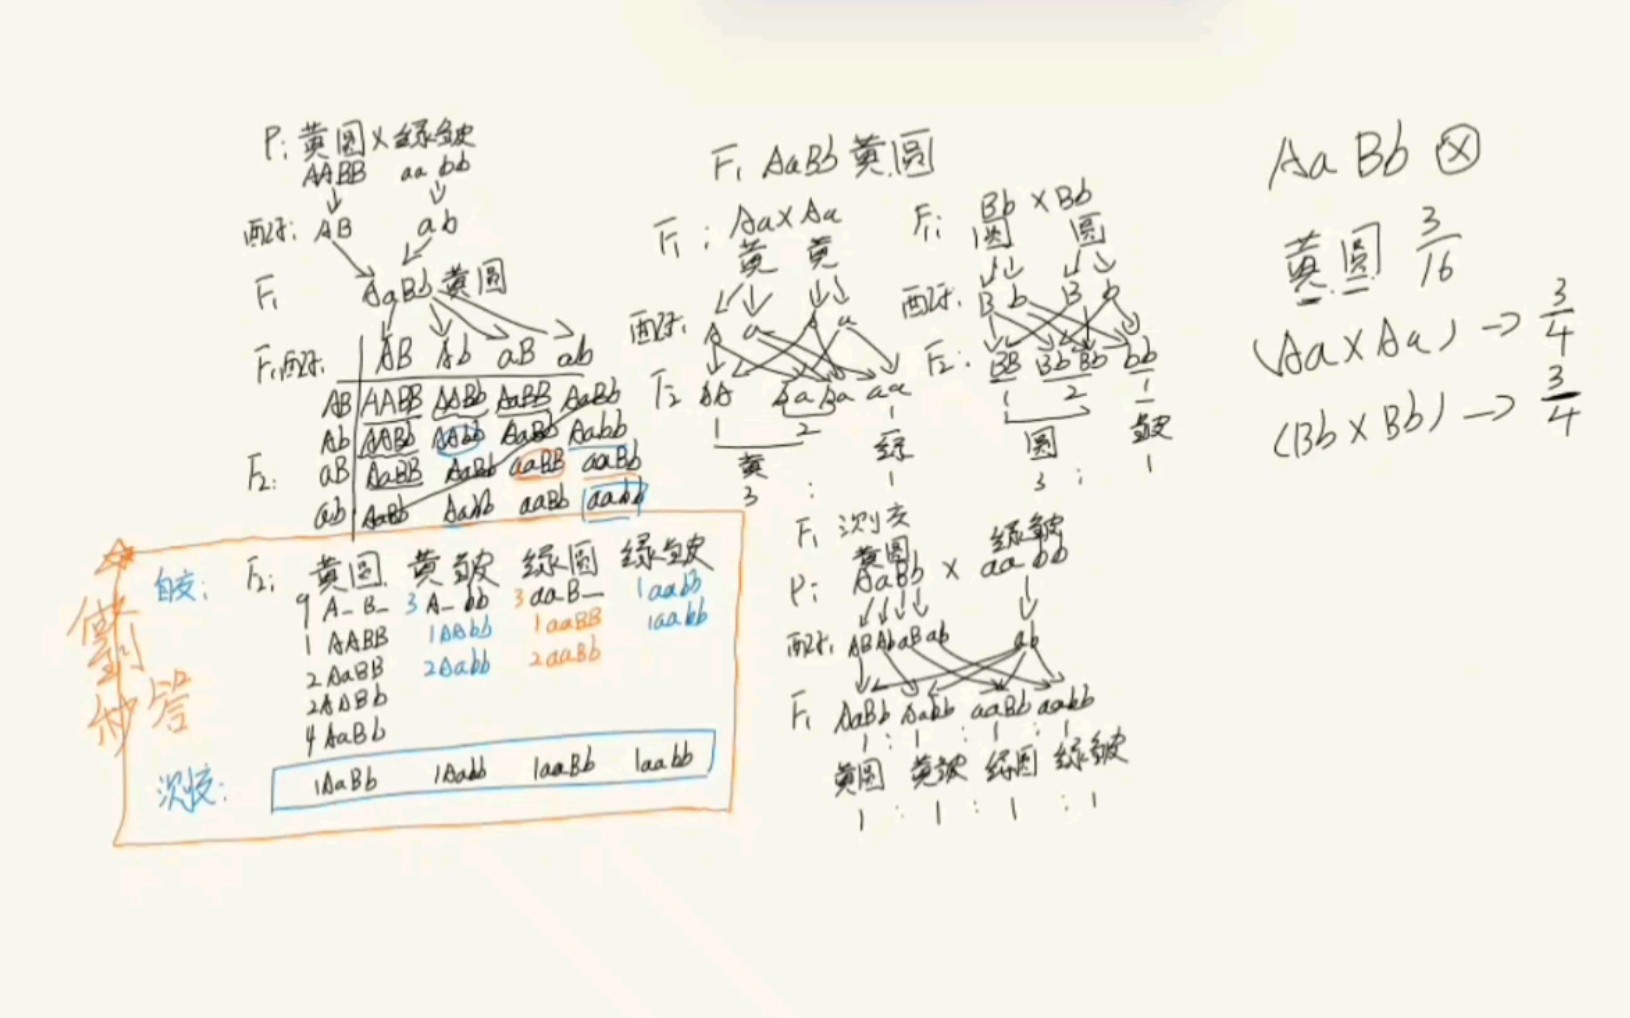 P: 黄圆×绿皱
AABB aabb
配子: AB ab
F₁ AaBb 黄圆
F₁配子: AB Ab aB ab
AB AABB AABb AaBB AaBb
Ab AABb AAbb AaBb Aabb
F₂: aB AaBB AaBb aaBB aaBb
ab AaBb Aabb aaBb aabb
做到秒答
自交: F₂: 黄圆 黄皱 绿圆 绿皱
9 A_B_ 3 A_bb 3 aaB_ 1aabb
1 AABB 1AAbb 1aaBB 1aabb
2 AaBB 2Aabb 2aaBb
2AABb
4 AaBb
测交: 1AaBb 1Aabb 1aaBb 1aabb
F₁ AaBb 黄圆
F₁: Aa×Aa
黄 黄
配子: A a A a
F₂ AA Aa Aa aa
1 2 1
黄 绿
3 : 1
F₁: Bb×Bb
圆 圆
配子: B b B b
F₂: BB Bb Bb bb
1 2 1
圆 皱
3 : 1
F₁ 测交
黄圆 绿皱
P: AaBb × aabb
配子: AB Ab aB ab ab
F₁ AaBb Aabb aaBb aabb
1 : 1 : 1 : 1
黄圆 黄皱 绿圆 绿皱
1 : 1 : 1 : 1
AaBb ⊗
黄圆 3/16
(Aa×Aa) → 3/4
(Bb×Bb) → 3/4